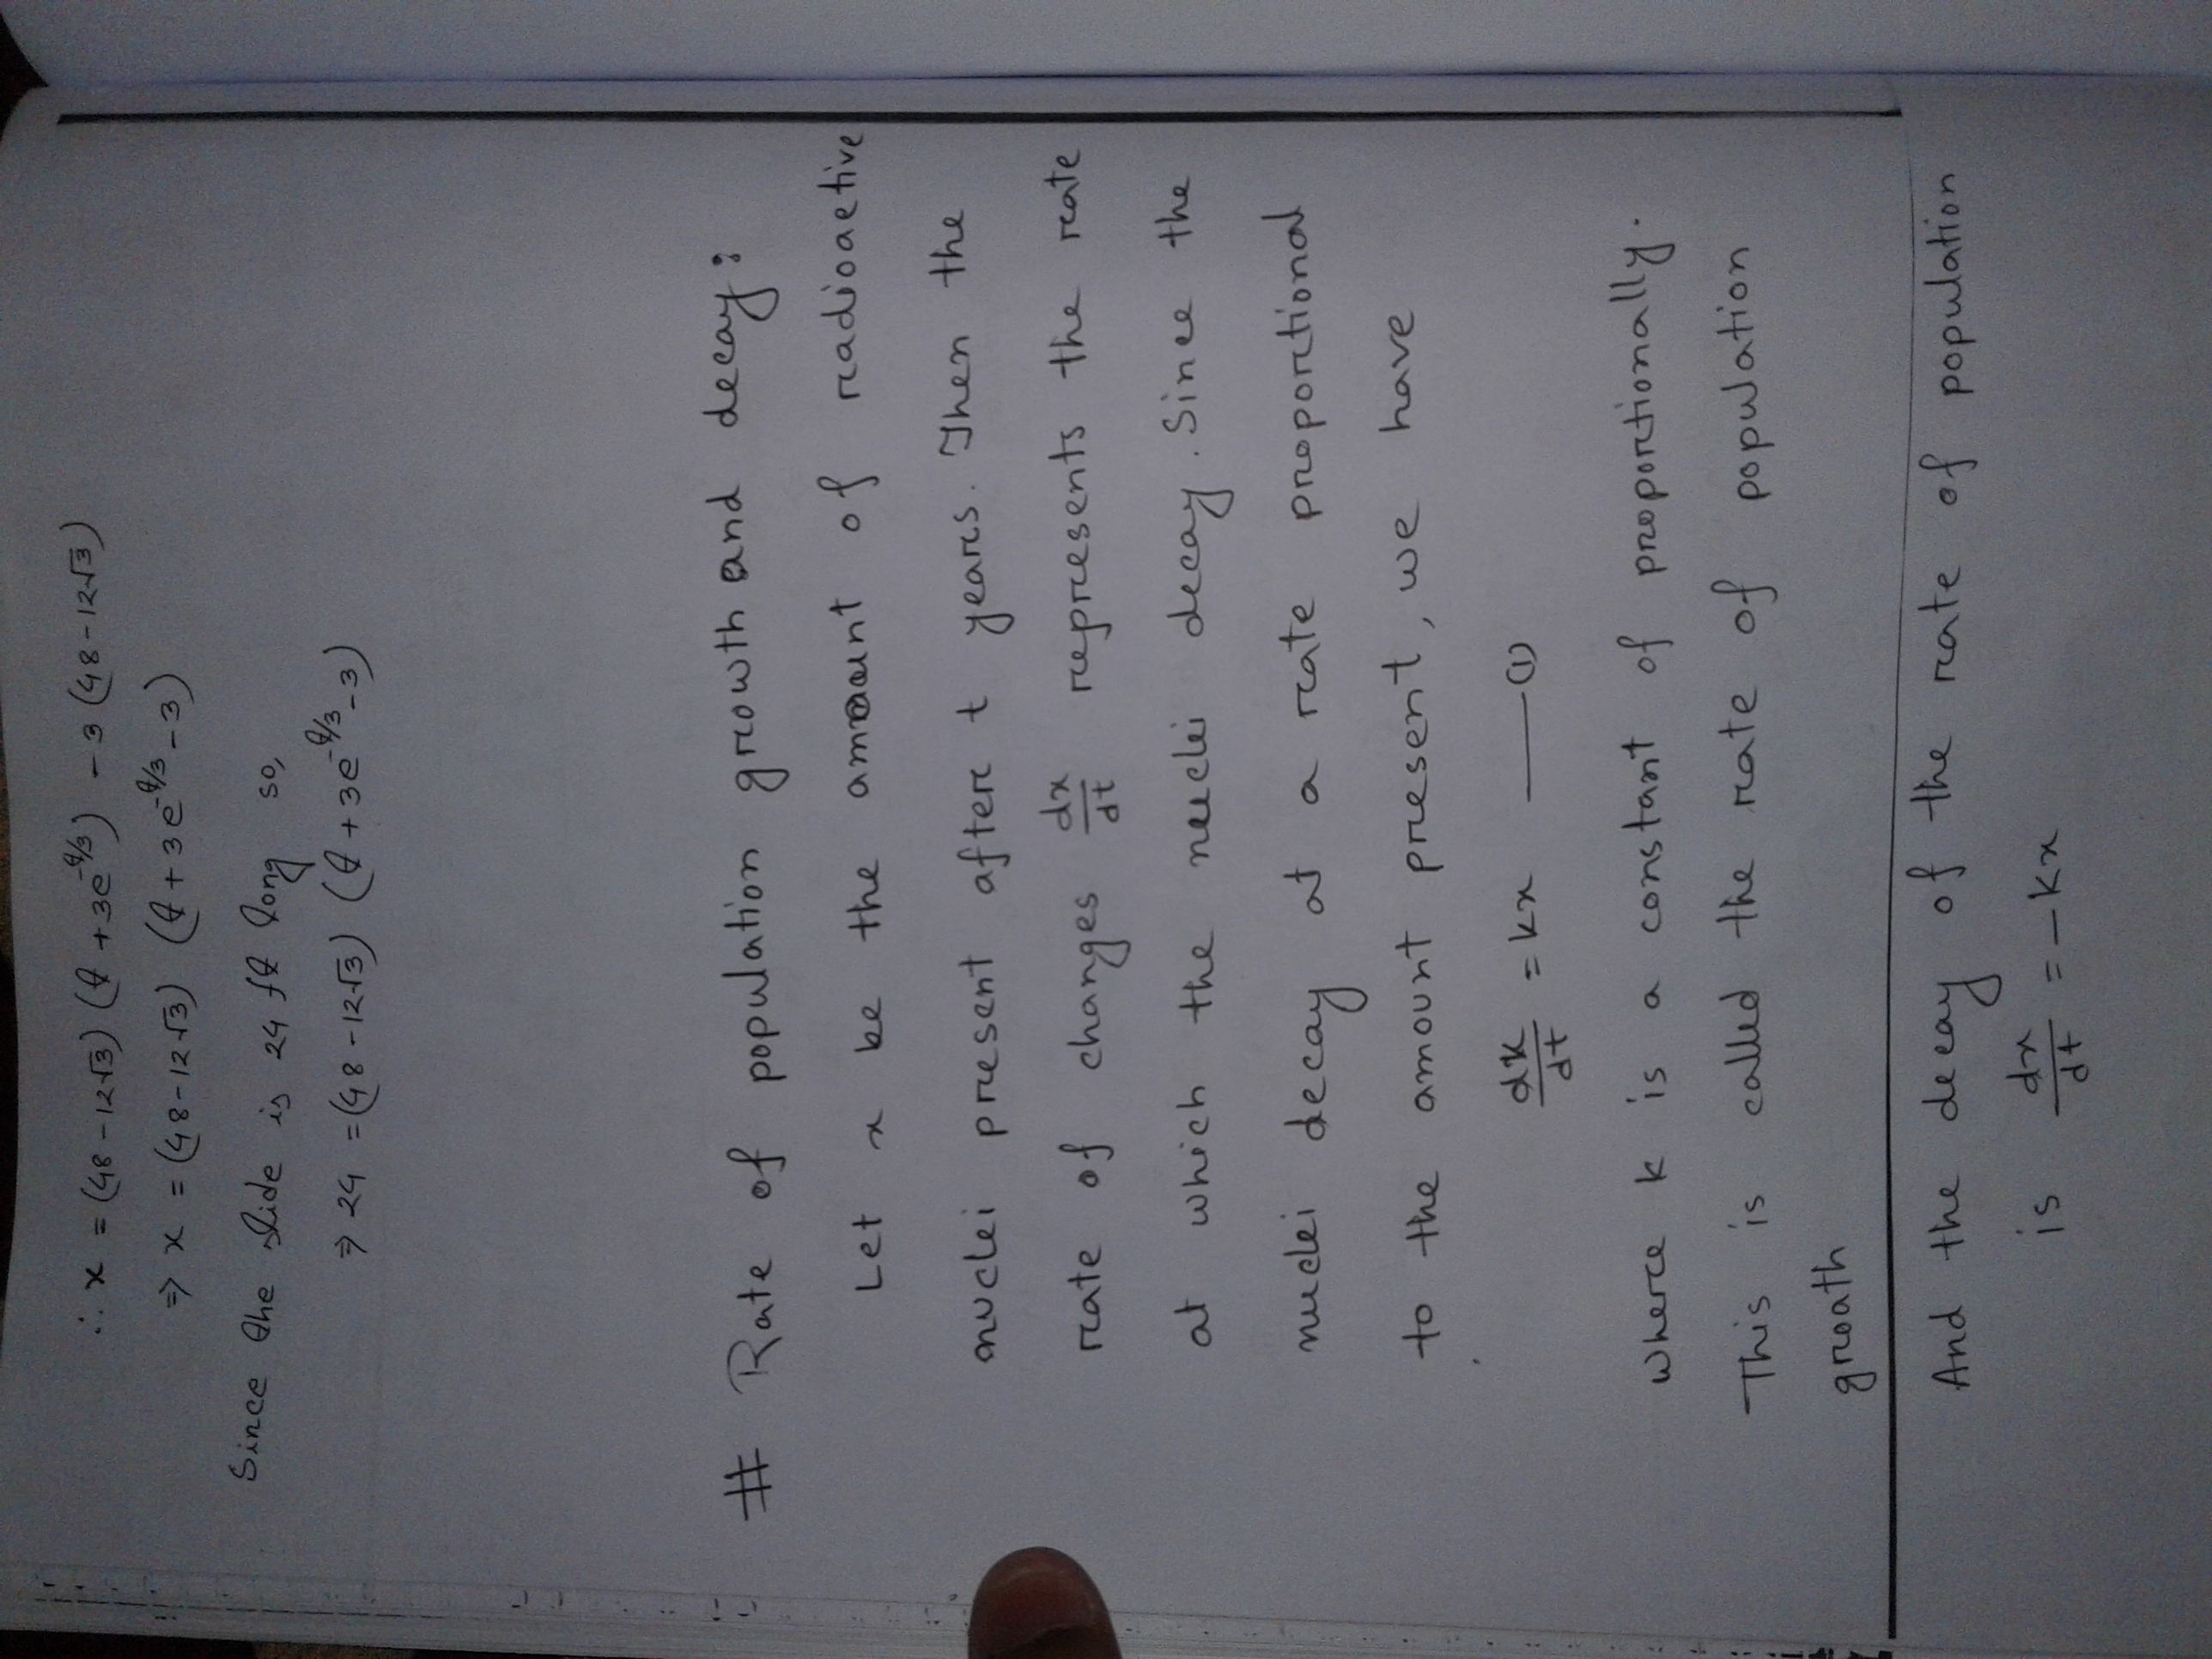 ∴ x = (48 – 12√3) (t + 3e^{-t/3}) – 3 (48 – 12√3)
⇒ x = (48 – 12√3) (t + 3e^{-t/3} – 3)
Since the slide is 24 ft long so,
⇒ 24 = (48 – 12√3) (t + 3e^{-t/3} – 3)
# Rate of population growth and decay:
Let x be the amount of radioactive
nuclei present after t years. Then the
rate of changes dx/dt represents the rate
at which the nuclei decay. Since the
nuclei decay at a rate proportional
to the amount present, we have
dx/dt = kx ——(1)
where k is a constant of proportionally.
This is called the rate of population
groath
And the decay of the rate of population
is dx/dt = –kx